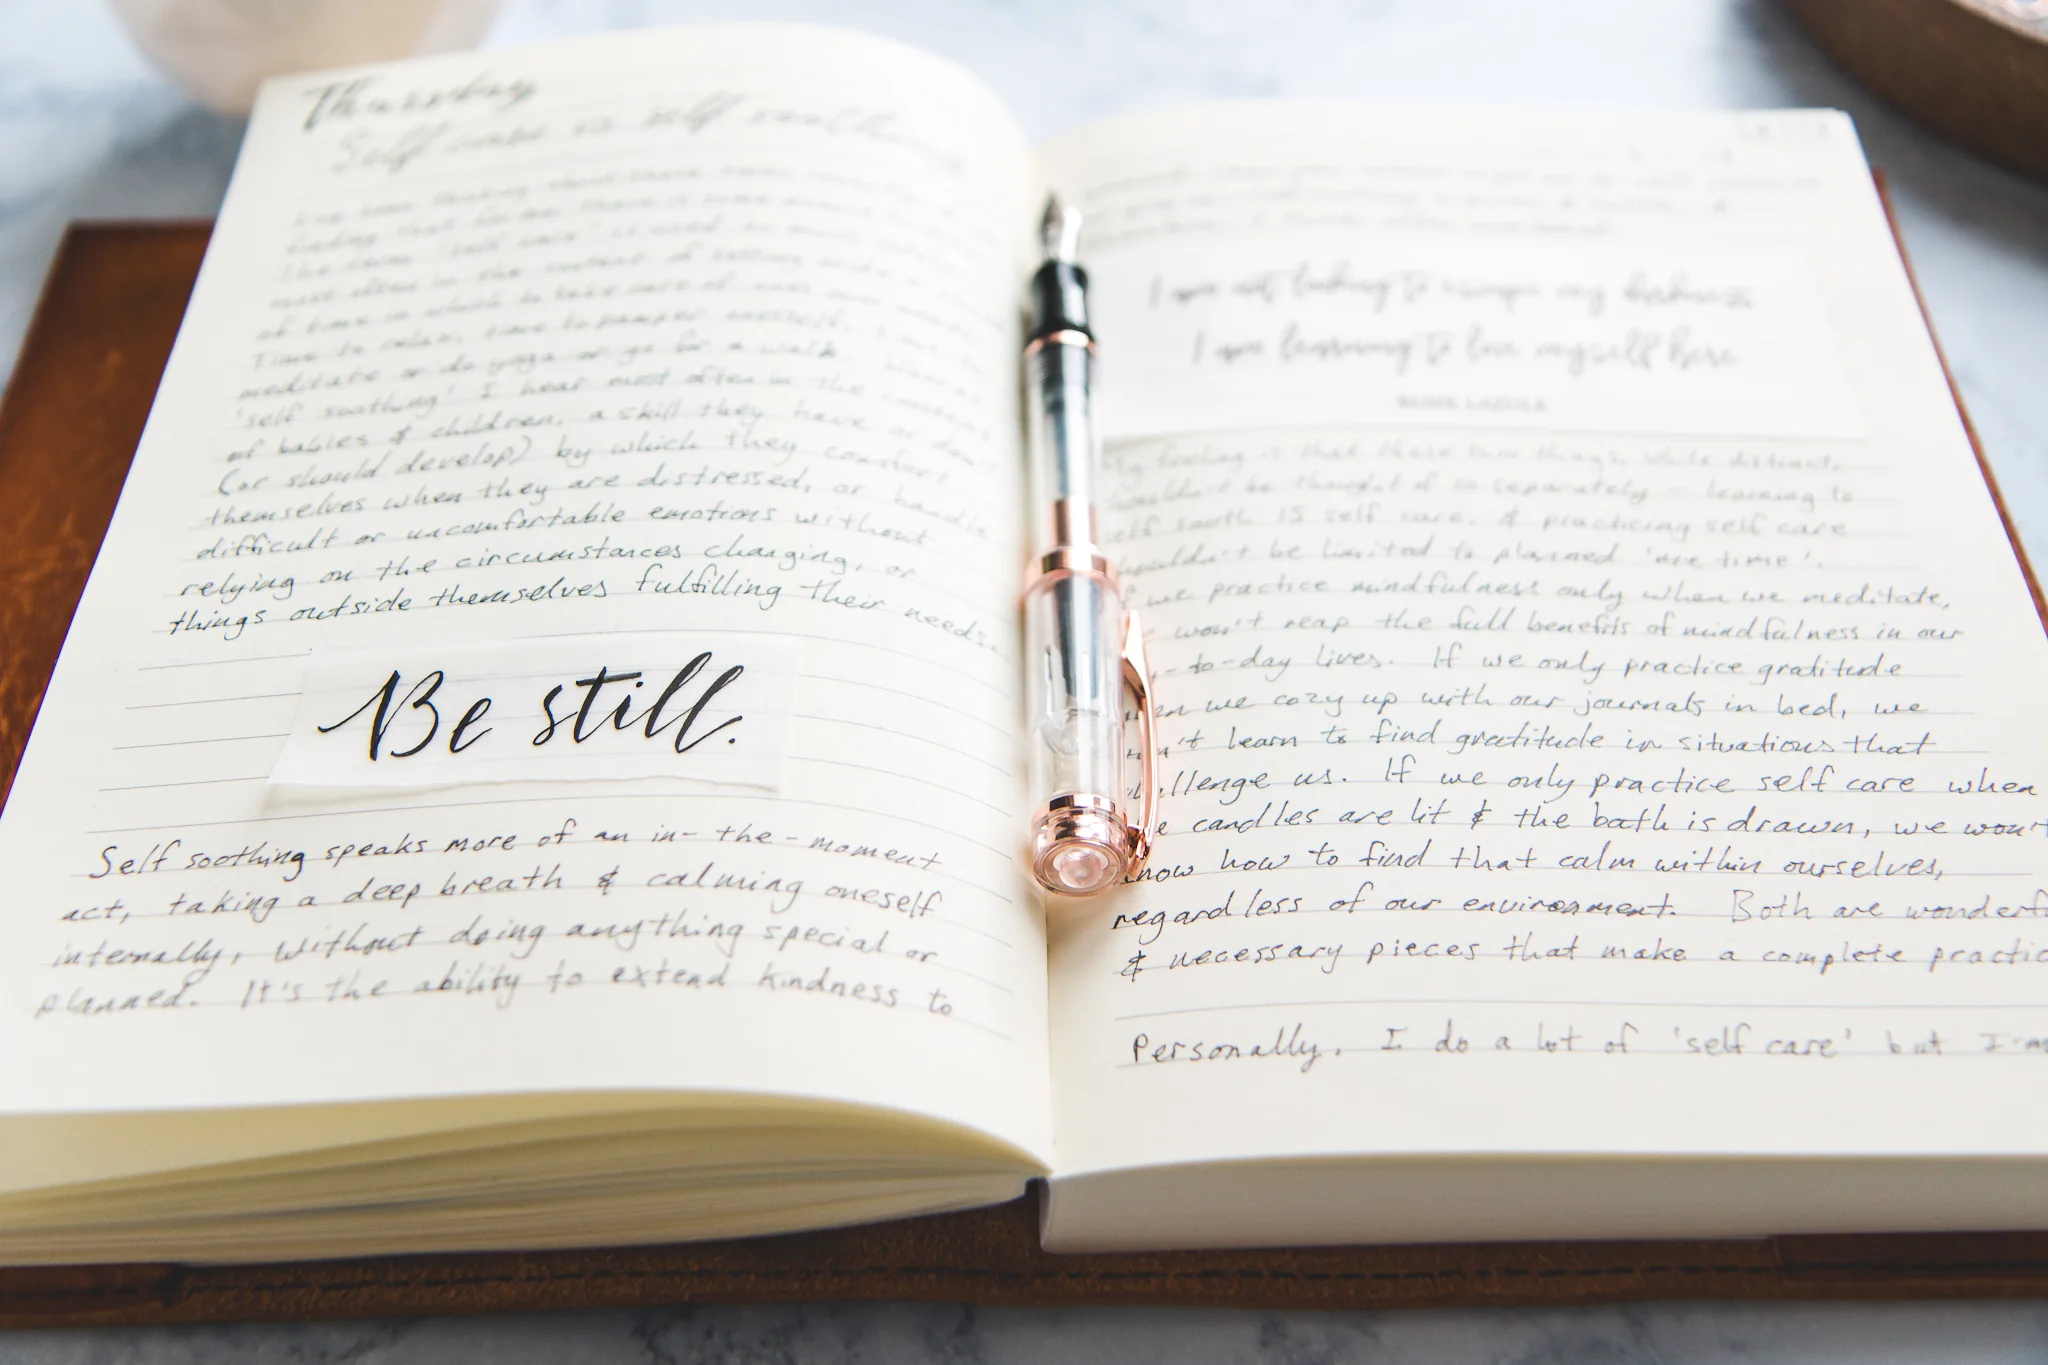 Thursday
Self care vs self soothing
I've been thinking about these terms
finding that for me, there is some
The term 'self care' is used so much
most often in the context of setting aside a
of time in which to take care of one's own needs.
Time to relax, time to pamper oneself, time to
meditate or do yoga or go for a walk. Whereas
'self soothing' I hear most often in the context
of babies & children, a skill they have or don't
(or should develop) by which they comfort
themselves when they are distressed, or handle
difficult or uncomfortable emotions without
relying on the circumstances changing, or
things outside themselves fulfilling their needs.
Be still.
Self soothing speaks more of an in-the-moment
act, taking a deep breath & calming oneself
internally, without doing anything special or
planned. It's the ability to extend kindness to
I am not looking to escape my darkness
I am learning to love myself here.
RUNE LAZULI
My feeling is that these two things, while distinct,
shouldn't be thought of so separately - learning to
self sooth is self care, & practicing self care
shouldn't be limited to planned 'me time'.
we practice mindfulness only when we meditate,
won't reap the full benefits of mindfulness in our
-to-day lives. If we only practice gratitude
we cozy up with our journals in bed, we
learn to find gratitude in situations that
challenge us. If we only practice self care when
candles are lit & the bath is drawn, we won't
know how to find that calm within ourselves,
regardless of our environment. Both are wonderf
& necessary pieces that make a complete practic
Personally, I do a lot of 'self care' but I'm